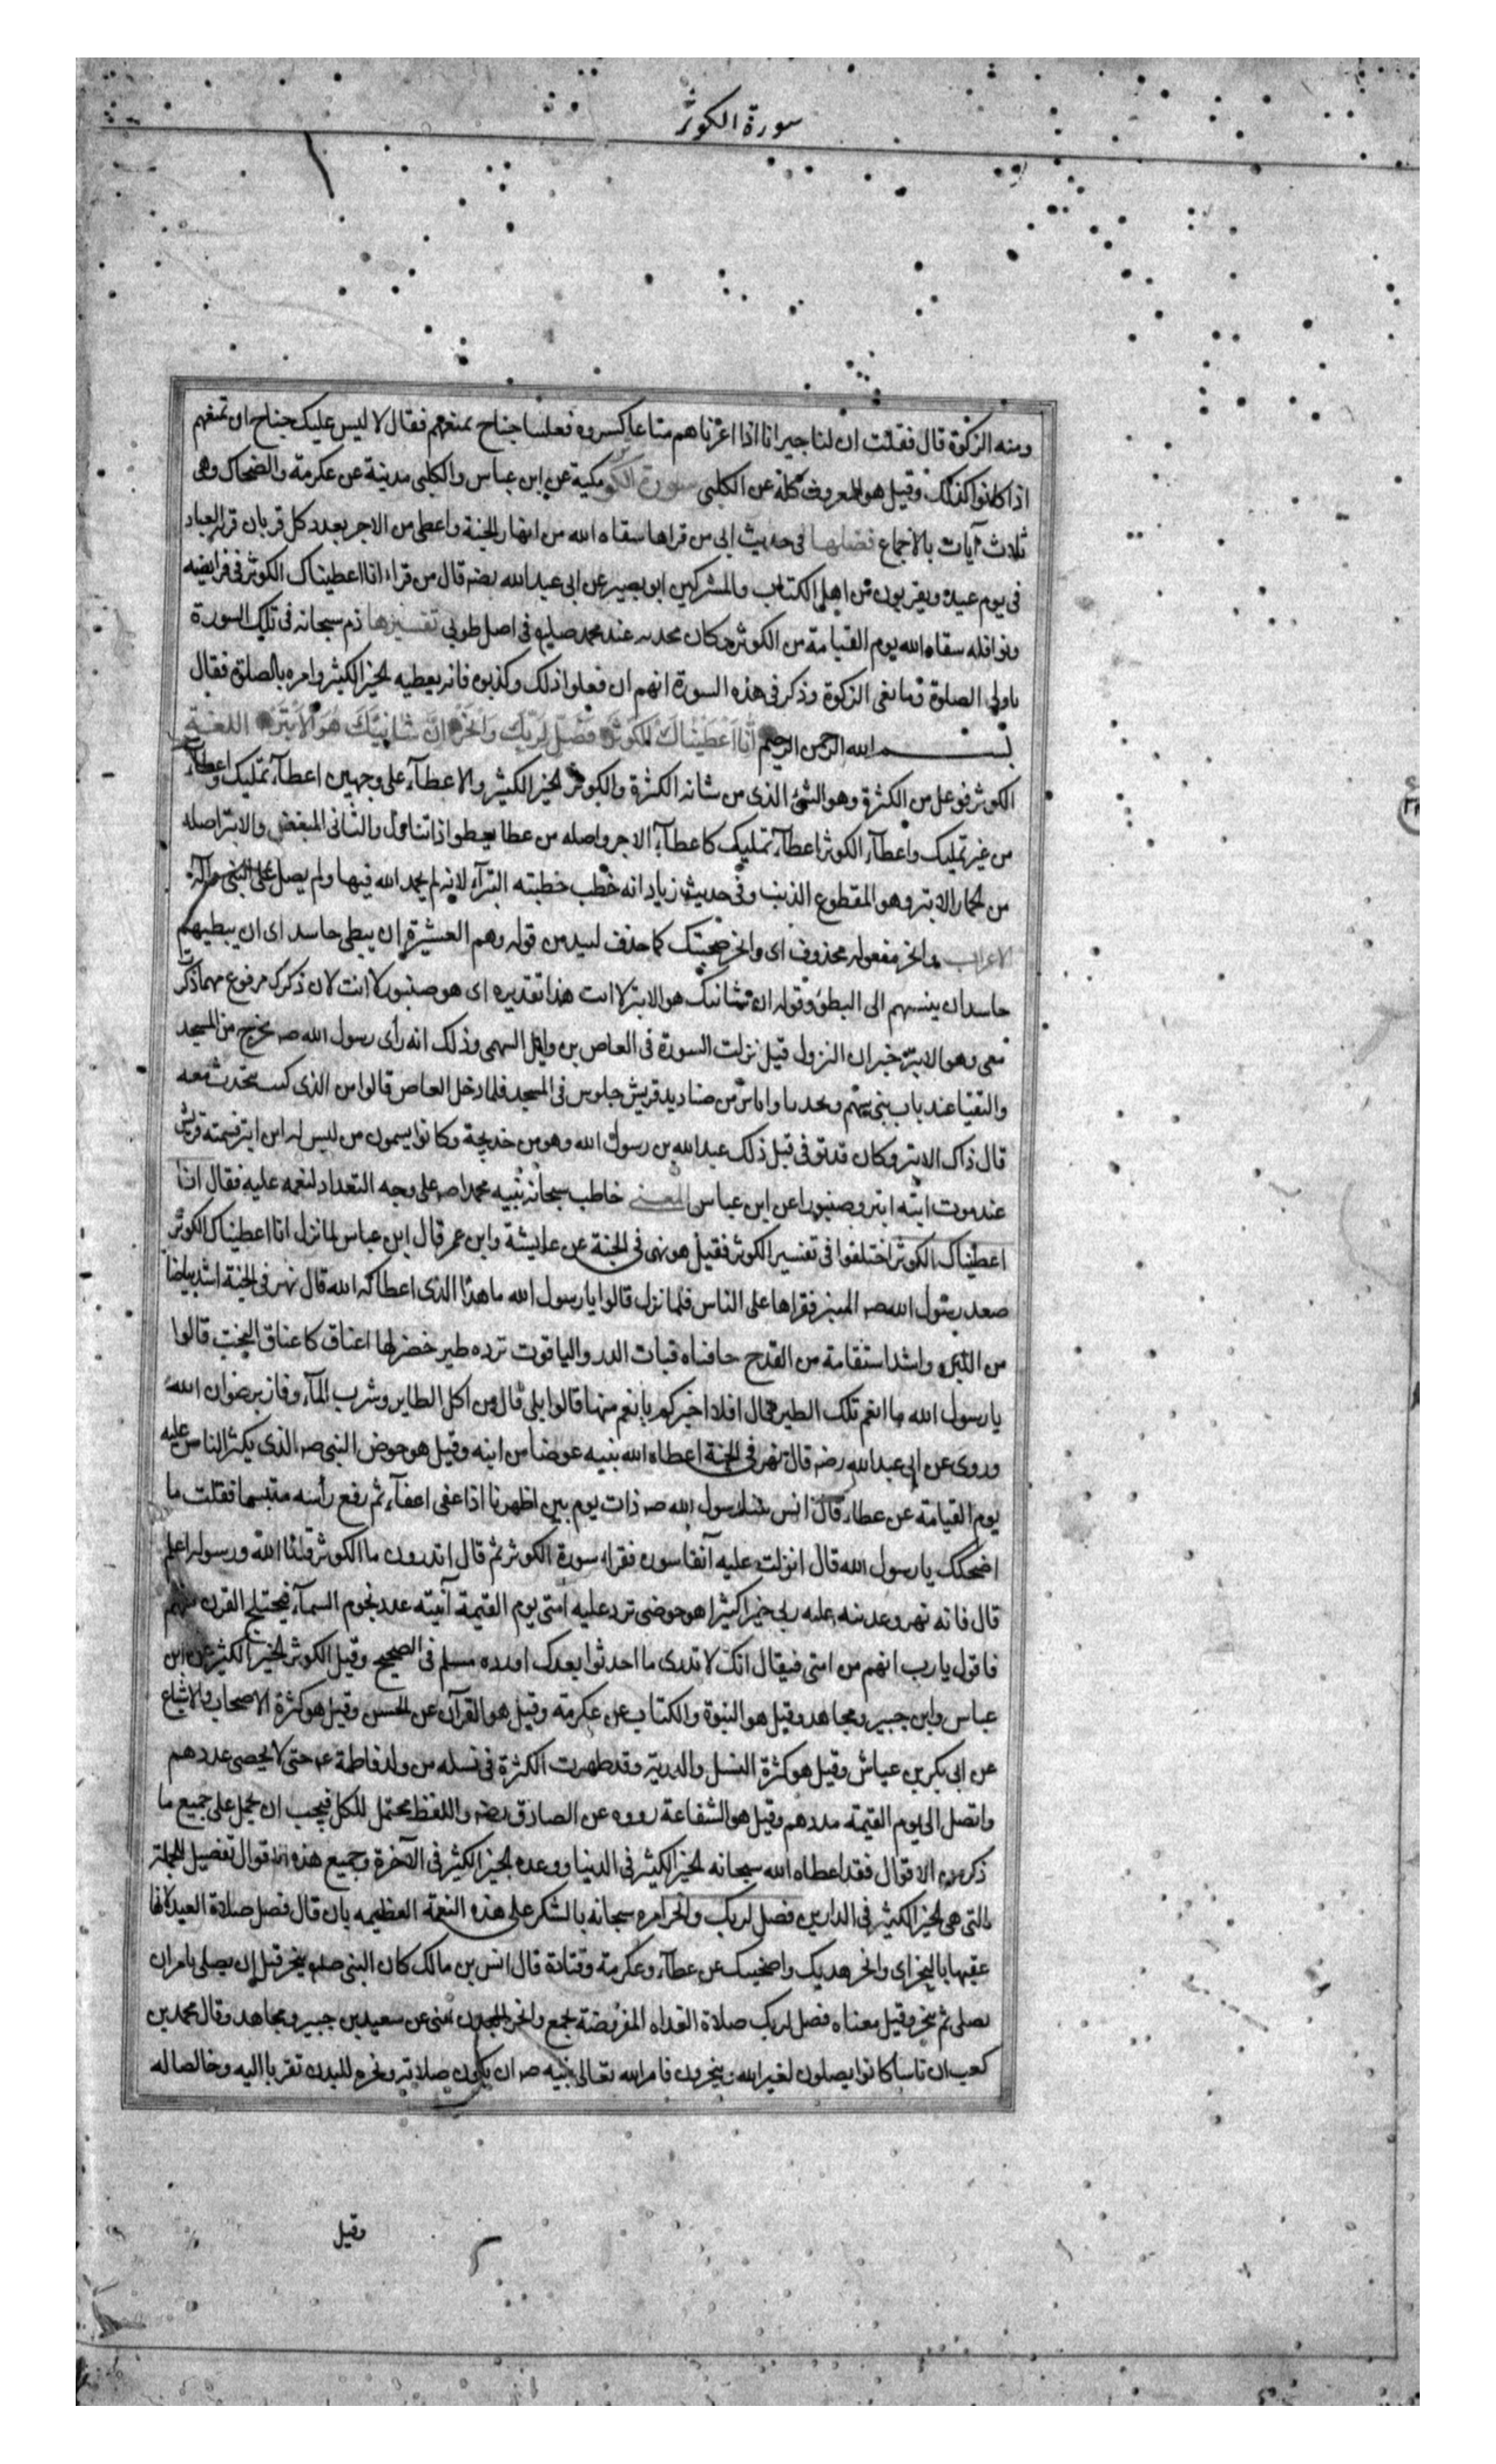 سورة الكوثر
ومنه الزكوة قال فقلت ان لنا جيرانا اذا اعرناهم متاعا كسروه فعلينا جناح بمنعهم فقال لا ليس عليك جناح ان تمنعهم
اذا كانوا كذلك وقيل هو المعروف كله عن الكلبي سورة الكوثر مكية عن ابن عباس والكلبي مدينة عن عكرمة والضحاك وهي
ثلاث آيات بالاجماع فضلها في حديث ابي من قراها سقاه الله من انهار الجنة واعطى من الاجر بعدد كل قربان قربه العباد
في يوم عيد ويقربون من اهل الكتاب والمشركين ابو بصير عن ابي عبد الله رضه قال من قراء انا اعطيناك الكوثر في فرايضه
ونوافله سقاه الله يوم القيامة من الكوثر وكان محدثه عند محمد صلع في اصل طوبى تفسيرها ذم سبحانه في تلك السورة
تاركي الصلوة ومانعي الزكوة وذكر في هذه السورة انهم ان فعلوا ذلك وكذبوه فانه يعطيه الخير الكثير وامره بالصلوة فقال
بسم الله الرحمن الرحيم انا اعطيناك الكوثر فصل لربك وانحر ان شانئك هو الابتر اللغة
الكوثر فوعل من الكثرة وهو الشئ الذي من شانه الكثرة والكوثر الخير الكثير والاعطآء على وجهين اعطآء تمليك واعطآء
من غير تمليك واعطآء الكوثر اعطآء تمليك كاعطآء الاجر واصله من عطا يعطوا اذا تناول والشانى المبغض والابتر اصله
من الحمار الابتر وهو المقطوع الذنب وفي حديث زياد انه خطب خطبته البترآء لانه لم يحمد الله فيها ولم يصل على النبي وآله
الاعراب وانحر مفعوله محذوف اى وانحر ضحيتك كما حذف لبيد من قوله وهم العشيرة ان يبطى حاسد اى ان يبطيهم
حاسد ان ينسبهم الى البطؤ وقوله ان شانئك هو الابتر لا انت هذا تقديره اى هو صنبور لا انت لان ذكرك مرفوع مهما ذكرت
معى وهو الابتر خبر ان النزول قيل نزلت السورة في العاص بن وايل السهمى وذلك انه رأى رسول الله صم يخرج من المسجد
والتقيا عند باب بني سهم وتحدثا واناس من صناديد قريش جلوس في المسجد فلما دخل العاص قالوا من الذي كنت تتحدث معه
قال ذاك الابتر وكان قد توفي قبل ذلك عبد الله بن رسول الله وهو من خديجة وكانوا يسمون من ليس له ابن ابتر فسمته قريش
عند موت ابنه ابتر وصنبورا عن ابن عباس المعنى خاطب سبحانه نبيه محمدا صم على وجه التعداد لنعمه عليه فقال انا
اعطيناك الكوثر اختلفوا في تفسير الكوثر فقيل هو نهر في الجنة عن عايشة وابن عمر قال ابن عباس لما نزل انا اعطيناك الكوثر
صعد رسول الله صم المنبر فقراها على الناس فلما نزل قالوا يا رسول الله ما هذا الذي اعطاكه الله قال نهر في الجنة اشد بياضا
من اللبن واشد استقامة من القدح حافتاه قبات الدر والياقوت ترده طير خضر لها اعناق كاعناق البخت قالوا
يا رسول الله ما انعم تلك الطير قال افلا اخبركم بانعم منها قالوا بلى قال من اكل الطاير وشرب المآء وفاز برضوان الله
وروى عن ابي عبد الله رضه قال نهر في الجنة اعطاه الله نبيه عوضا من ابنه وقيل هو حوض النبي صم الذي يكثر الناس عليه
يوم القيامة عن عطاء وقال انس بينا رسول الله صم ذات يوم بين اظهرنا اذا غفى اغفآء ثم رفع رأسه متبسما فقلت ما
اضحكك يا رسول الله قال انزلت عليه آنفا سوره فقراء سورة الكوثر ثم قال اتدرون ما الكوثر قلنا الله ورسوله اعلم
قال فانه نهر وعدنيه عليه ربى خيرا كثيرا هو حوضى ترد عليه امتى يوم القيمة آنيته عدد نجوم السمآء فيختلج القرن منهم
فاقول يا رب انهم من امتى فيقال انك لا تدرى ما احدثوا بعدك اورده مسلم في الصحيح وقيل الكوثر الخير الكثير عن ابن
عباس وابن جبير ومجاهد وقيل هو النبوة والكتاب عن عكرمة وقيل هو القرآن عن الحسن وقيل هو كثرة الاصحاب والاشياع
عن ابى بكر بن عياش وقيل هو كثرة النسل والذرية وقد ظهرت الكثرة في نسله من ولد فاطمة عم حتى لا يحصى عددهم
واتصل الى يوم القيمة مددهم وقيل هو الشفاعة رووه عن الصادق رضه واللفظ محتمل للكل فيجب ان يحمل على جميع ما
ذكر من الاقوال فقد اعطاه الله سبحانه الخير الكثير في الدنيا ووعده الخير الكثير في الآخرة وجميع هذه الاقوال تفصيل للجملة
التى هى الخير الكثير في الدارين فصل لربك وانحر امره سبحانه بالشكر على هذه النعمة العظيمه بان قال فصل صلاة العيد لانها
عقبها بالنحر اى وانحر هديك واضحيتك عن عطآء وعكرمة وقتادة قال انس بن مالك كان النبي صلم ينحر قبل ان يصلى فامر ان
يصلى ثم ينحر وقيل معناه فصل لربك صلاة الغداة المفروضة بجمع وانحر البدن بمنى عن سعيد بن جبير ومجاهد وقال محمد بن
كعب ان ناسا كانوا يصلون لغير الله وينحرون فامر الله تعالى نبيه صم ان يكون صلاته ونحره للبدن تقربا اليه وخالصا له
وقيل